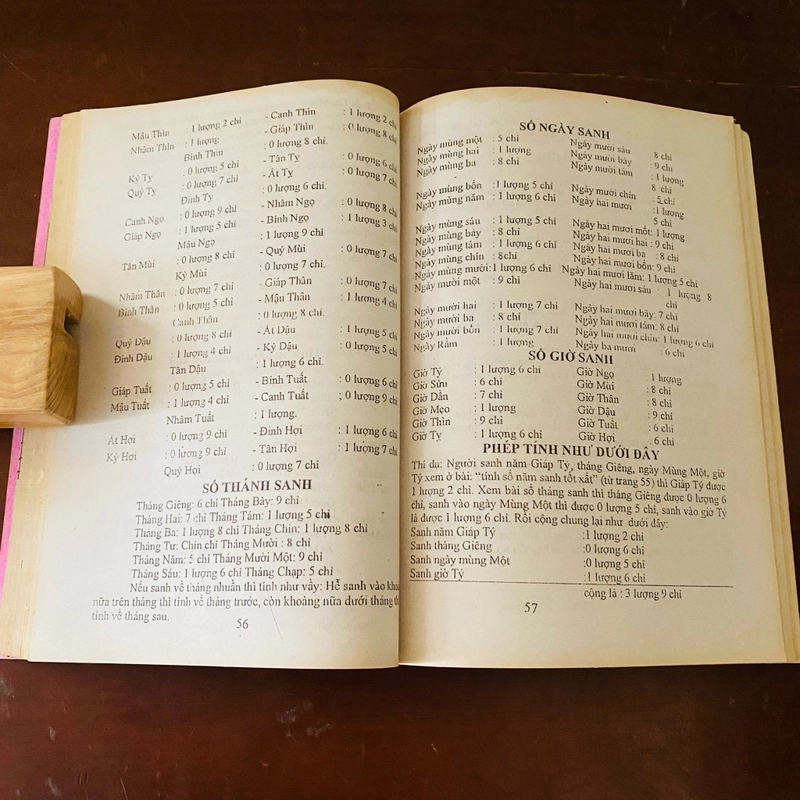 Mậu Thìn : 1 lượng 2 chỉ - Canh Thìn : 1 lượng 2 chỉ
Nhâm Thìn : 1 lượng - Giáp Thìn : 0 lượng 8 chỉ
Bính Thìn : 0 lượng 8 chỉ.
Kỷ Tỵ : 0 lượng 5 chỉ - Tân Tỵ : 0 lượng 6 chỉ
Quý Tỵ : 0 lượng 7 chỉ - Ất Tỵ : 0 lượng 7 chỉ
Đinh Tỵ : 0 lượng 6 chỉ.
Canh Ngọ : 0 lượng 9 chỉ - Nhâm Ngọ : 0 lượng 8 chỉ
Giáp Ngọ : 1 lượng 5 chỉ - Bính Ngọ : 1 lượng 3 chỉ
Mậu Ngọ : 1 lượng 9 chỉ
Tân Mùi : 0 lượng 8 chỉ - Quý Mùi : 0 lượng 7 chỉ
Kỷ Mùi : 0 lượng 7 chỉ.
Nhâm Thân : 0 lượng 7 chỉ - Giáp Thân : 0 lượng 7 chỉ
Bính Thân : 0 lượng 5 chỉ - Mậu Thân : 1 lượng 4 chỉ
Canh Thân : 0 lượng 8 chỉ.
Quý Dậu : 0 lượng 8 chỉ - Ất Dậu : 1 lượng 5 chỉ
Đinh Dậu : 1 lượng 4 chỉ - Kỷ Dậu : 0 lượng 5 chỉ
Tân Dậu : 1 lượng 6 chỉ.
Giáp Tuất : 0 lượng 5 chỉ - Bính Tuất : 0 lượng 6 chỉ
Mậu Tuất : 1 lượng 4 chỉ - Canh Tuất ; 0 lượng 9 chỉ
Nhâm Tuất : 1 lượng.
Ất Hợi : 0 lượng 9 chỉ - Đinh Hợi : 1 lượng 6 chỉ
Kỷ Hợi : 0 lượng 9 chỉ - Tân Hợi : 1 lượng 7 chỉ
Quý Hợi : 0 lượng 7 chỉ
SỐ THÁNH SANH
Tháng Giêng: 6 chỉ Tháng Bảy: 9 chỉ
Tháng Hai: 7 chỉ Tháng Tám: 1 lượng 5 chỉ
Tháng Ba: 1 lượng 8 chỉ Tháng Chín: 1 lượng 8 chỉ
Tháng Tư: Chín chỉ Tháng Mười : 8 chỉ
Tháng Năm: 5 chỉ Tháng Mười Một: 9 chỉ
Tháng Sáu: 1 lượng 6 chỉ Tháng Chạp: 5 chỉ
Nếu sanh về tháng nhuần thì tính như vầy: Hễ sanh vào
nữa trên tháng thì tính về tháng trước, còn khoảng nữa dưới tháng
tính về tháng sau.
56
SỐ NGÀY SANH
Ngày mùng một : 5 chỉ Ngày mười sáu 8 chỉ
Ngày mùng hai : 1 lượng Ngày mười bảy : 9 chỉ
Ngày mùng ba : 8 chỉ Ngày mười tám : 1 lượng
8 chỉ
Ngày mùng bốn : 1 lượng 5 chỉ Ngày mười chín : 5 chỉ
Ngày mùng năm : 1 lượng 6 chỉ Ngày hai mươi :1 lượng
5 chỉ
Ngày mùng sáu : 1 lượng 5 chỉ Ngày hai mươi mốt: 1 lượng
Ngày mùng bảy : 8 chỉ Ngày hai mươi hai : 9 chỉ
Ngày mùng tám : 1 lượng 6 chỉ Ngày hai mươi ba : 8 chỉ
Ngày mùng chín : 8 chỉ Ngày hai mươi bốn: 9 chỉ
Ngày mùng mười: 1 lượng 6 chỉ Ngày hai mươi lăm: 1 lượng 5 chỉ
Ngày mười một : 9 chỉ Ngày hai mươi sáu : 1 lượng 8
chỉ
Ngày mười hai : 1 lượng 7 chỉ Ngày hai mươi bảy: 7 chỉ
Ngày mười ba : 8 chỉ Ngày hai mươi tám: 8 chỉ
Ngày mười bốn : 1 lượng 7 chỉ Ngày hai mươi chín : 1 lượng 6 chỉ
Ngày Rằm : 1 lượng 5 chỉ Ngày ba mươi : 6 chỉ
SỐ GIỜ SANH
Giờ Tý : 1 lượng 6 chỉ Giờ Ngọ : 1 lượng
Giờ Sửu : 6 chỉ Giờ Mùi : 8 chỉ
Giờ Dần : 7 chỉ Giờ Thân : 8 chỉ
Giờ Mẹo : 1 lượng Giờ Dậu : 9 chỉ
Giờ Thìn : 9 chỉ Giờ Tuất : 6 chỉ
Giờ Tỵ : 1 lượng 6 chỉ Giờ Hợi : 6 chỉ
PHÉP TÍNH NHƯ DƯỚI ĐÂY
Thí dụ: Người sanh năm Giáp Tý, tháng Giêng, ngày Mùng Một, giờ
Tý xem ở bài: “tính số năm sanh tốt xất” (từ trang 55) thì Giáp Tý được
1 lượng 2 chỉ. Xem bài số tháng sanh thì tháng Giêng được 0 lượng 6
chỉ, sanh vào ngày Mùng Một thì được 0 lượng 5 chỉ, sanh vào giờ Tý
là được 1 lượng 6 chỉ. Rồi cộng chung lại như dưới đây:
Sanh năm Giáp Tý :1 lượng 2 chỉ
Sanh tháng Giêng :0 lượng 6 chỉ
Sanh ngày mùng Một :0 lượng 5 chỉ
Sanh giờ Tý :1 lượng 6 chỉ
cộng là : 3 lượng 9 chỉ
57